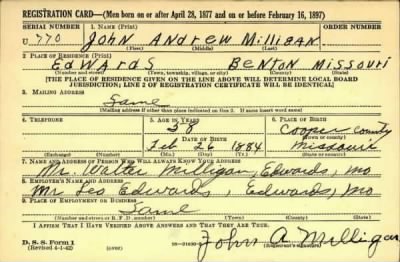 REGISTRATION CARD—(Men born on or after April 28, 1877 and on or before February 16, 1897)
SERIAL NUMBER 1. NAME (Print) ORDER NUMBER
U 770 John Andrew Milligan
(First) (Middle) (Last)
2. PLACE OF RESIDENCE (Print)
Edwards Benton Missouri
(Number and street) (Town, township, village, or city) (County) (State)
[THE PLACE OF RESIDENCE GIVEN ON THE LINE ABOVE WILL DETERMINE LOCAL BOARD
JURISDICTION; LINE 2 OF REGISTRATION CERTIFICATE WILL BE IDENTICAL]
3. MAILING ADDRESS
Same
(Mailing address if other than place indicated on line 2. If same insert word same)
4. TELEPHONE 5. AGE IN YEARS 6. PLACE OF BIRTH
58 Cooper County
DATE OF BIRTH (Town or county)
Feb 26 1884 Missouri
(Exchange) (Number) (Mo.) (Day) (Yr.) (State or country)
7. NAME AND ADDRESS OF PERSON WHO WILL ALWAYS KNOW YOUR ADDRESS
Mr. Walter Milligan, Edwards, Mo
8. EMPLOYER'S NAME AND ADDRESS
Mr. Leo Edwards, Edwards, Mo
9. PLACE OF EMPLOYMENT OR BUSINESS
Same
(Number and street or R. F. D. number) (Town) (County) (State)
I AFFIRM THAT I HAVE VERIFIED ABOVE ANSWERS AND THAT THEY ARE TRUE.
D. S. S. Form 1
(Revised 4-1-42) John A Milligan
(Registrant's signature)